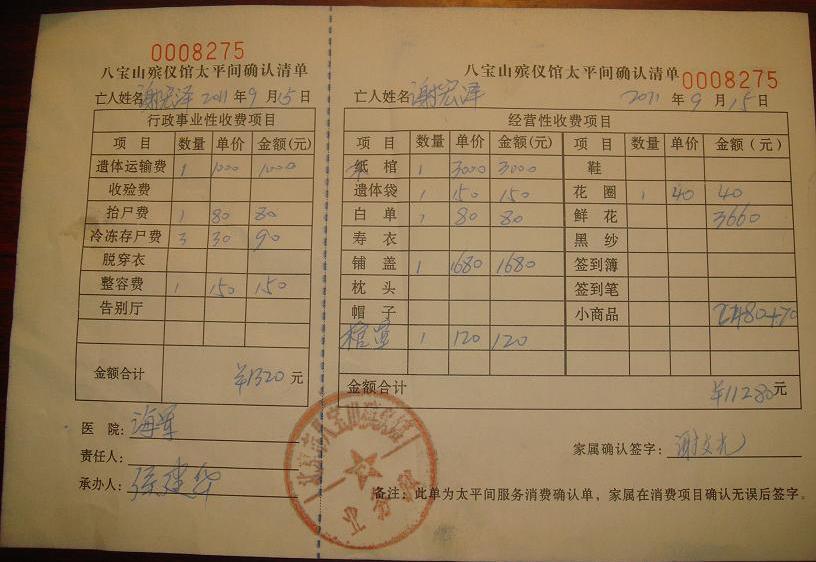 0008275
八宝山殡仪馆太平间确认清单
亡人姓名 谢宏泽 2011年9月15日
行政事业性收费项目
项 目 数量 单价 金额(元)
遗体运输费 1 1000 1000
收殓费
抬尸费 1 80 80
冷冻存尸费 3 30 90
脱穿衣
整容费 1 150 150
告别厅
金额合计 ¥1320元
医 院: 海军
责任人:
承办人:
0008275
八宝山殡仪馆太平间确认清单
亡人姓名 谢宏泽 2011年9月15日
经营性收费项目
项 目 数量 单价 金额(元) 项 目 数量 单价 金额(元)
纸 棺 1 3000 3000 鞋
遗体袋 1 150 150 花 圈 1 40 40
白 单 1 80 80 鲜 花 3660
寿 衣 黑 纱
铺 盖 1 1680 1680 签到簿
枕 头 签到笔
帽 子 小商品
1 120 120
金额合计 ¥11280元
家属确认签字:
备注:此单为太平间服务消费确认单,家属在消费项目确认无误后签字。
业务